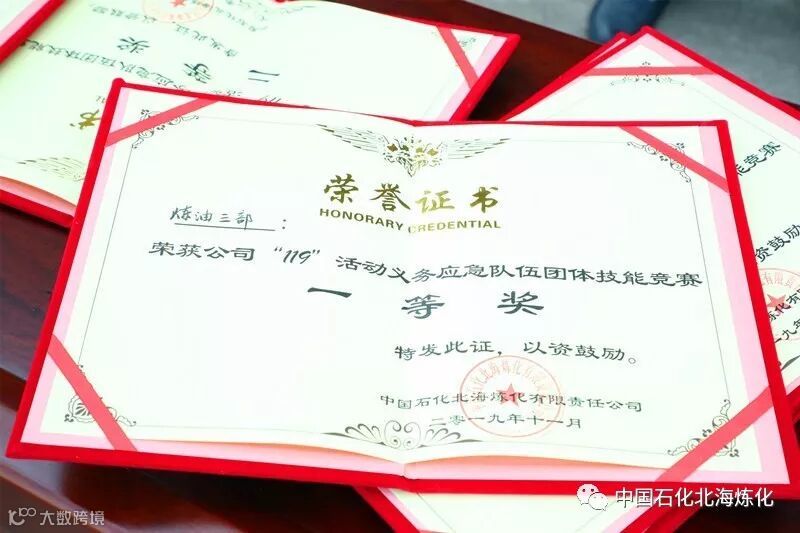 荣誉证书
HONORARY CREDENTIAL
炼油三部：
荣获公司“119”活动义务应急队伍团体技能竞赛
一等奖
特发此证，以资鼓励。
中国石化北海炼化有限责任公司
二零一九年十一月
书
二等奖
应急队伍团体技能
以资鼓
技能竞赛
资鼓励
中国石化北海炼化
大数跨境